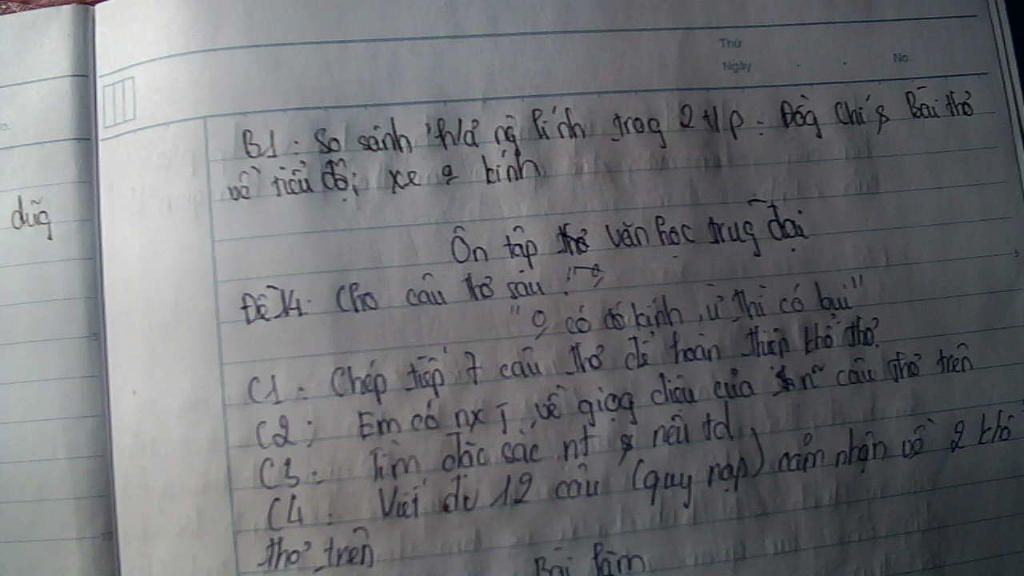 Thứ
Ngày
No.
B1: So sánh h/ả ng lính trog 2 t/p: Đồg chí & Bài thơ
về tiểu đội xe 0 kính
dũg
Ôn tập văn học trug đại
Đề 14: Cho câu thơ sau:
"0 có kính, ừ thì có bụi"
C1: Chép tiếp 7 câu thơ để hoàn thiện khổ thơ.
C2: Em có nx j về giọg điệu của n~ câu thơ trên
C3: Tìm đặc sắc nt & nêu td
C4: Viết đv 12 câu (quy nạp) cảm nhận về 2 khổ
thơ trên
Bài làm